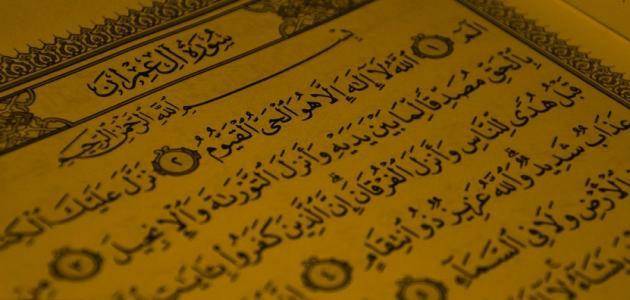 سُورَةُ آلِ عِمْرَانَ
بِسْمِ ٱللَّهِ ٱلرَّحْمَٰنِ ٱلرَّحِيمِ
الٓمٓ ١ ٱللَّهُ لَآ إِلَٰهَ إِلَّا هُوَ ٱلْحَىُّ ٱلْقَيُّومُ ٢ نَزَّلَ عَلَيْكَ ٱلْكِتَ
بِٱلْحَقِّ مُصَدِّقًا لِّمَا بَيْنَ يَدَيْهِ وَأَنزَلَ ٱلتَّوْرَىٰةَ وَٱلْإِنجِيلَ ٣ مِن
قَبْلُ هُدًى لِّلنَّاسِ وَأَنزَلَ ٱلْفُرْقَانَ ۗ إِنَّ ٱلَّذِينَ كَفَرُوا۟ بِـَٔايَٰتِ
عَذَابٌ شَدِيدٌ ۗ وَٱللَّهُ عَزِيزٌ ذُو ٱنتِقَامٍ ٤
ٱلْأَرْضِ وَلَا فِى ٱلسَّمَآءِ ٥
يَشَآءُ ۚ لَآ